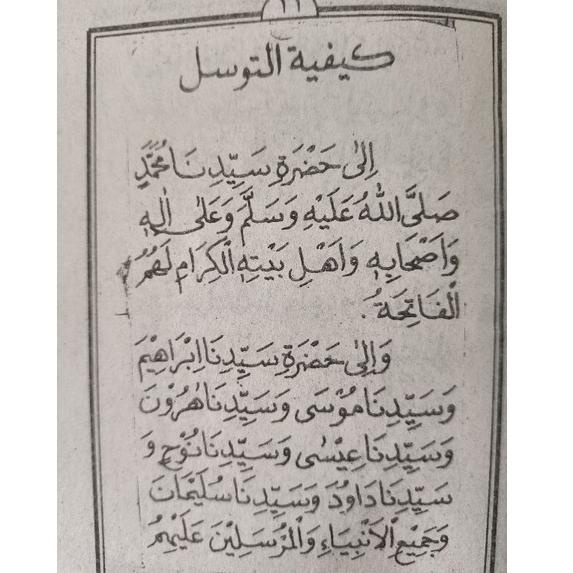 ١١
كيفية التوسل
اِلىٰ حَضْرَةِ سَيِّدِنَا مُحَمَّدٍ
صَلَّى اللهُ عَلَيْهِ وَسَلَّمَ وَعَلىٰ اٰلِهٖ
وَاَصْحَابِهٖ وَاَهْلِ بَيْتِهِ الْكِرَامِ لَهُمُ
الْفَاتِحَةُ.
وَاِلىٰ حَضْرَةِ سَيِّدِنَا اِبْرَاهِيْمَ
وَسَيِّدِنَا مُوْسَى وَسَيِّدِنَا هٰرُوْنَ
وَسَيِّدِنَا عِيْسٰى وَسَيِّدِنَا نُوْحٍ وَ
سَيِّدِنَا دَاوُدَ وَسَيِّدِنَا سُلَيْمَانَ
وَجَمِيْعِ الْاَنْبِيَاءِ وَالْمُرْسَلِيْنَ عَلَيْهِمُ